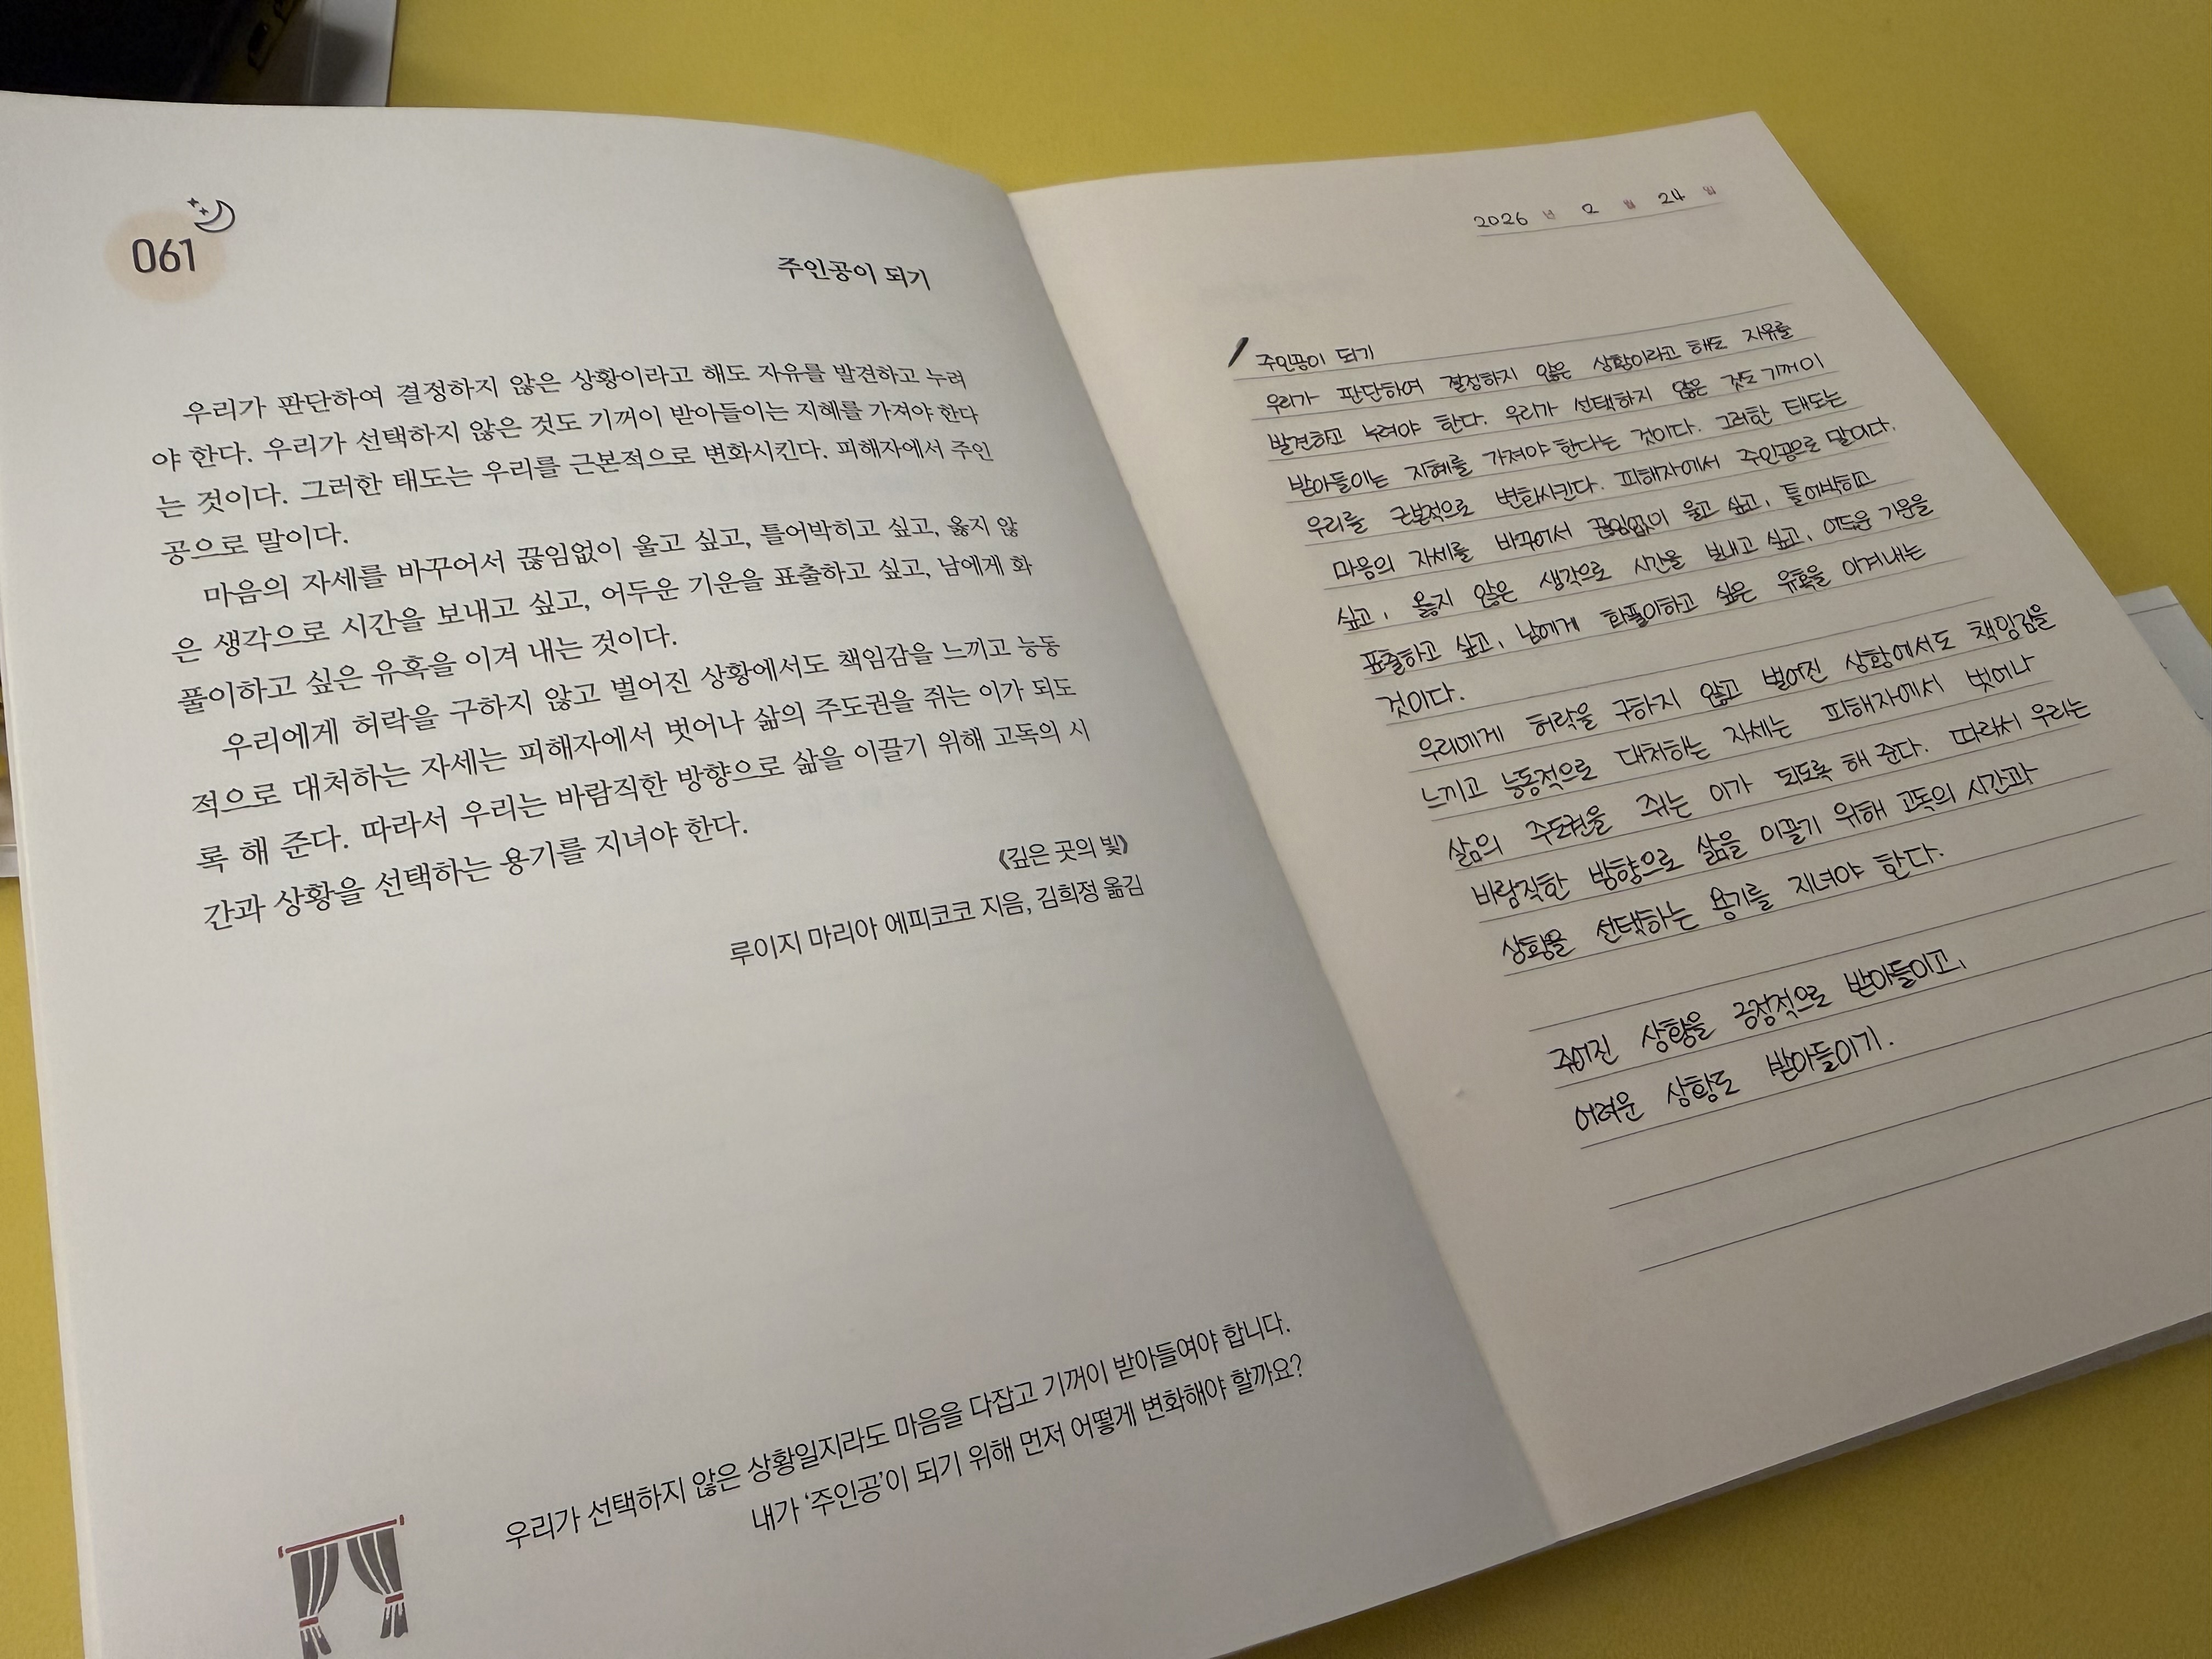 061
주인공이 되기
우리가 판단하여 결정하지 않은 상황이라고 해도 자유를 발견하고 누려
야 한다. 우리가 선택하지 않은 것도 기꺼이 받아들이는 지혜를 가져야 한다
는 것이다. 그러한 태도는 우리를 근본적으로 변화시킨다. 피해자에서 주인
공으로 말이다.
마음의 자세를 바꾸어서 끊임없이 울고 싶고, 틀어박히고 싶고, 옳지 않
은 생각으로 시간을 보내고 싶고, 어두운 기운을 표출하고 싶고, 남에게 화
풀이하고 싶은 유혹을 이겨 내는 것이다.
우리에게 허락을 구하지 않고 벌어진 상황에서도 책임감을 느끼고 능동
적으로 대처하는 자세는 피해자에서 벗어나 삶의 주도권을 쥐는 이가 되도
록 해 준다. 따라서 우리는 바람직한 방향으로 삶을 이끌기 위해 고독의 시
간과 상황을 선택하는 용기를 지녀야 한다.
《깊은 곳의 빛》
루이지 마리아 에피코코 지음, 김희정 옮김
우리가 선택하지 않은 상황일지라도 마음을 다잡고 기꺼이 받아들여야 합니다.
내가 ‘주인공’이 되기 위해 먼저 어떻게 변화해야 할까요?
2026 년 2 월 24 일
주인공이 되기
우리가 판단하여 결정하지 않은 상황이라고 해도 자유를
발견하고 누려야 한다. 우리가 선택하지 않은 것도 기꺼이
받아들이는 지혜를 가져야 한다는 것이다. 그러한 태도는
우리를 근본적으로 변화시킨다. 피해자에서 주인공으로 말이다.
마음의 자세를 바꾸어서 끊임없이 울고 싶고, 틀어박히고
싶고, 옳지 않은 생각으로 시간을 보내고 싶고, 어두운 기운을
표출하고 싶고, 남에게 화풀이하고 싶은 유혹을 이겨 내는
것이다.
우리에게 허락을 구하지 않고 벌어진 상황에서도 책임감을
느끼고 능동적으로 대처하는 자세는 피해자에서 벗어나
삶의 주도권을 쥐는 이가 되도록 해 준다. 따라서 우리는
바람직한 방향으로 삶을 이끌기 위해 고독의 시간과
상황을 선택하는 용기를 지녀야 한다.
주어진 상황을 긍정적으로 받아들이고,
어려운 상황도 받아들이기.